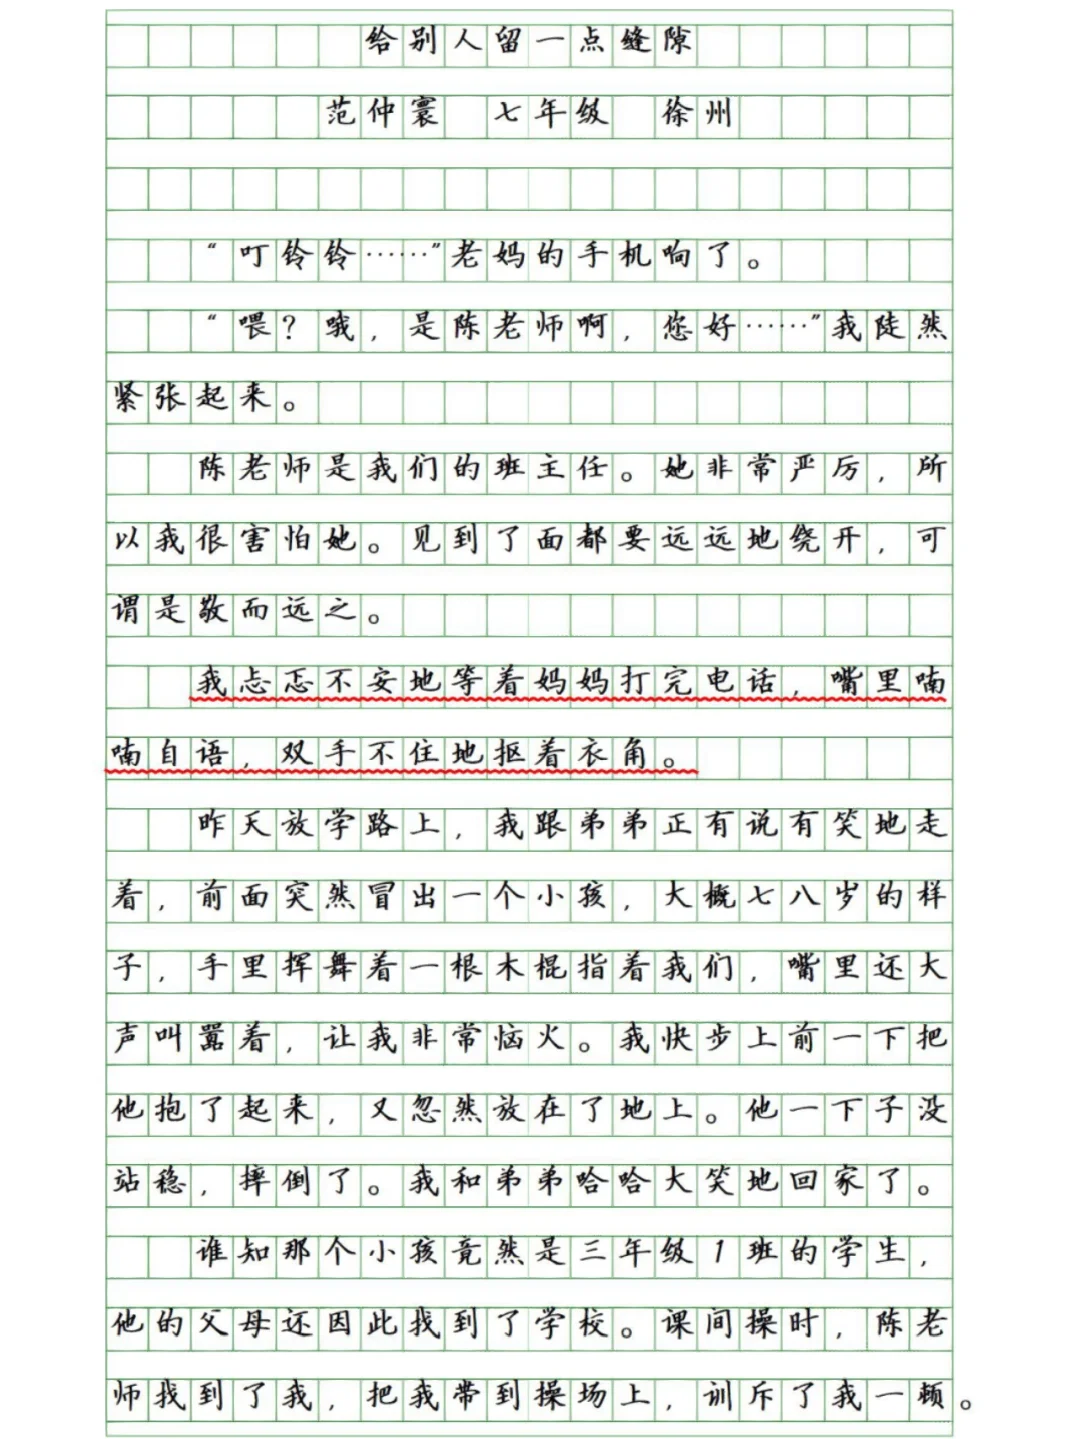 给别人留一点缝隙
范仲寰 七年级 徐州
“叮铃铃……”老妈的手机响了。
“喂？哦，是陈老师啊，您好……”我陡然
紧张起来。
陈老师是我们的班主任。她非常严厉，所
以我很害怕她。见到了面都要远远地绕开，可
谓是敬而远之。
我忐忑不安地等着妈妈打完电话，嘴里喃
喃自语，双手不住地抠着衣角。
昨天放学路上，我跟弟弟正有说有笑地走
着，前面突然冒出一个小孩，大概七八岁的样
子，手里挥舞着一根木棍指着我们，嘴里还大
声叫嚣着，让我非常恼火。我快步上前一下把
他抱了起来，又忽然放在了地上。他一下子没
站稳，摔倒了。我和弟弟哈哈大笑地回家了。
谁知那个小孩竟然是三年级1班的学生，
他的父母还因此找到了学校。课间操时，陈老
师找到了我，把我带到操场上，训斥了我一顿。